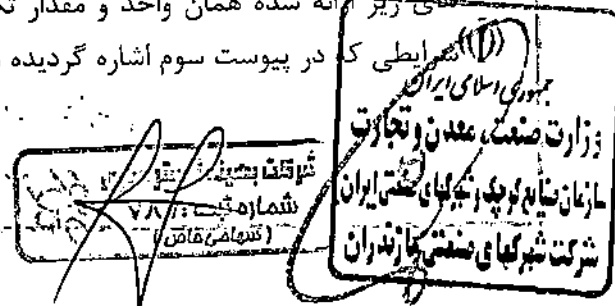 زیر ارائه شده همان واحد و مقدار
شرایطی که در پیوست سوم اشاره گردیده
جمهوری اسلامی ایران
وزارت صنعت، معدن و تجارت
سازمان صنایع کوچک و شهرکهای صنعتی ایران
شرکت شهرکهای صنعتی مازندران
شرکت
شماره ثبت:
(سهامی خاص)